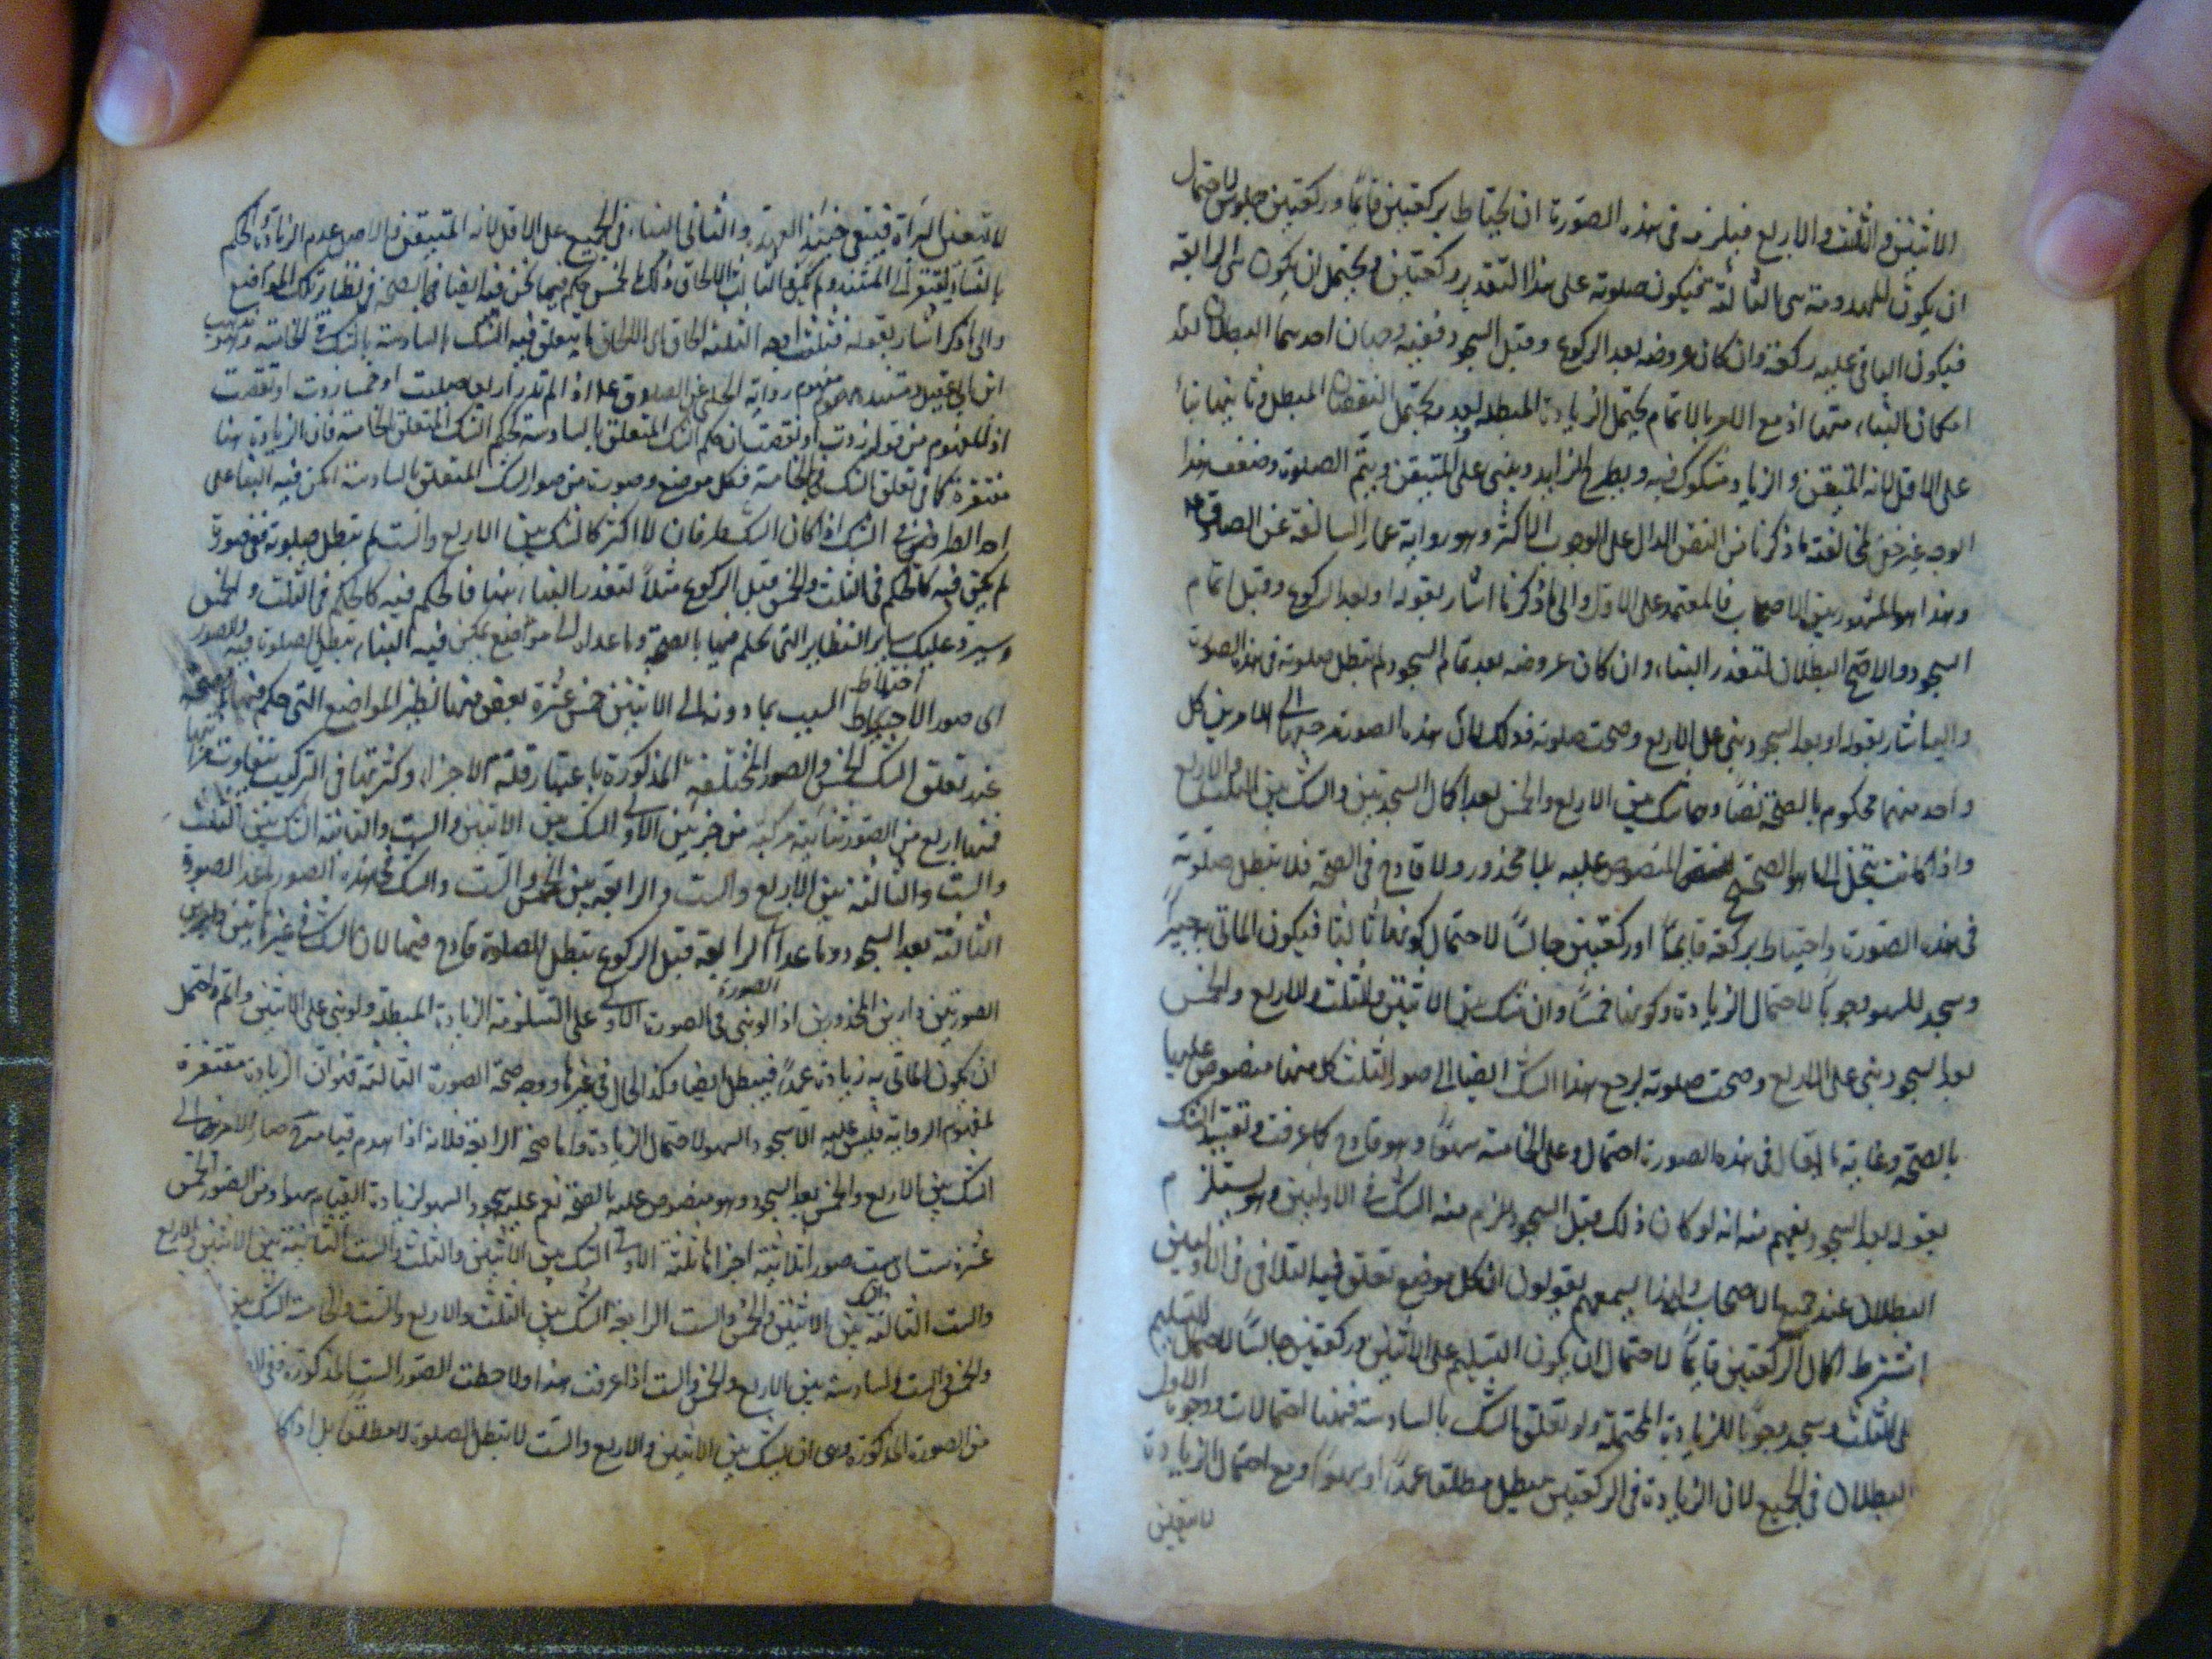 الاثنين والثلث والاربع فيلزمه فى هذه الصورة ان يحتاط بركعتين قايمًا وركعتين جلوس لاحتمال
ان يكون المهدومة هى الثالثة فيكون صلوته على هذا التقدير ركعتين ويحتمل ان يكون هى الرابعة
فيكون الباقى عليه ركعة وان كان عروضه بعد الركوع وقبل السجود ففيه وجهان احدهما البطلان لعدم
امكان البناء منهما اذ مع الامر بالاتمام يحتمل الزيادة المبطلة وبعدمه يحتمل النقصان المبطل وثانيهما
على الاقل لانه المتيقن والزياد مشكوك فيه ويطرح الزايد ويبنى على المتيقن ويتم الصلوة وضعف هذا
الوجه غير خفى لمخالفته ما ذكرنا من النص الدال على الوجوب الاكثر وهو رواية عمار السالفة عن الصادق
وهذا هو المشهور بين الاصحاب فالمعتمد على الاول والى ما ذكرنا اشار بقوله او بعد الركوع وقبل اتمام
السجود والاصح البطلان لتعذر البناء وان كان عروضه بعد تمام السجود لم تبطل صلوته فى هذه الصورة
واليها اشار بقوله او بعد السجود بنى على الاربع وصحت صلوته وذلك لان هذه الصورة مرجعها الى الامرين كل
واحد منهما محكوم بالصحة نصًا وهما شك بين الاربع والخمس بعد اكمال السجدتين والشك بين الثلث والاربع
واذا كانت تنحل الى ما هو الصحيح المنصوص عليه بلا محذور ولا قادح فى الصحة فلا تبطل صلوته
فى هذه الصورة واحتياط بركعة قايمًا او ركعتين جالسًا لاحتمال كونها ثالثا فيكون الماتى به
وسجد للسهو وجوبًا لاحتمال الزيادة وكونها خمسًا وان شك بين الاثنين والثلث والاربع والخمس
بعد السجود بنى على الاربع وصحت صلوته لرجع هذا الشك ايضا الى صور الثلث كل منها منصوص عليها
بالصحة وغاية ما يقال فى هذه الصورة احتمال وعلى الخامسة سهوًا وهو قادح كما عرفت وتقييد الشك
بقوله بعد السجود يفهم منه انه لو كان ذلك قبل السجود لزم منه الشك فى الاوليين وهو يستلزم
البطلان عند جميع الاصحاب ولهذا يسمعهم يقولون ان كل موضع تعلق فيه التلافى فى الاوليين
اشترط اكمال الركعتين قايمًا لاحتمال ان يكون التسليم على الاثنين وركعتين جالسًا لاحتمال التسليم
على الثلث وسجد وجوبًا للزيادة المحتملة ولو تعلق الشك بالسادسة فهنا احتمالات ووجوه الاول
البطلان فى الجميع لان الزيادة فى الركعتين مبطل مطلقا عمدًا او سهوًا ومع احتمال الزيادة
لا يتيقن
لا يتيقن البراءة فيبقى حينئذ العهدة والثانى البناء فى الجميع على الاقل لانه المتيقن والاصل عدم الزيادة والحكم
بالفساد يفتقر الى المستند ولم يكن الثالث الالحاق ذلك الخمس حكم فيما نحن فيه ايضا فى الصحة فى نظاير تلك المواضع
والى ما ذكر اشار بقوله فثلث اوجه الثلثة الحاق اى الحاق ما يتعلق فيه الشك بالسادسة بالشك فى الخامسة
ابن ابى عقيل ومستنده عموم مفهوم رواية الحلبى عن الصادق اذا لم تدر اربعا صليت او خمسا زدت او نقصت
اذ المفهوم من قوله زدت او نقصت ان حكم الشك المتعلق بالسادسة حكم الشك المتعلق بالخامسة فان الزيادة هنا
مغتفرة كما فى تعلق الشك فى الخامسة فكل موضع وصورة من صور الشك المتعلق بالسادسة امكن فيه البناء على
احد الطرفين فى الشك اذا كان الشك طرفان لا اكثر كالشك بين الاربع والست لم تبطل صلوته ففى صورة
لم يكن فيه كالحكم فى الثلث والخمس قبل الركوع مثلًا لتعذر البناء هنا فالحكم فيه كالحكم فى الثلث والخمس
وسيرد عليك ساير النظاير التى حكم فيها بالصحة وما عدا ذلك اى مواضع يمكن فيه البناء تبطل الصلوة فيه والصور
اى صور الاحتياط السبب بما دونه الى الاثنين خمس عشرة بعض منها نظير المواضع التى حكم فيها بالصحة
عند تعلق الشك الخمس والصور المختلفة المذكورة باعتبار قلة الاجزاء وكثرتها فى التركيب متفاوت مراتبها
فمنها اربع من الصور ثنائية مركبة من جزئين الاولى الشك بين الاثنين والست والثانية الشك بين الثلث
والست والثالثة بين الاربع والست والرابعة بين الخمس والست والشك فى هذه الصور ما عدا الصورة
الثالثة بعد السجود وما عدا الرابعة قبل الركوع تبطل للصلوة قادح فيها لان الشك فى غير هاتين
الصورتين داير بين المحذورين اذ لو بنى فى الصورة الاولى على الست لزمه الزيادة المبطلة ولو بنى على الاثنين واتم احتمل
ان يكون الماتى به زيادة عمدًا فيبطل ايضا وكذا الحال فى غيرها ووجه صحة الصورة الثالثة فهو ان الزيادة مغتفرة
لمفهوم الرواية فليس عليه الا سجود السهو لاحتمال الزيادة واما صحة الرابعة فلانه اذا هدم قيامه صار الامر الى
الشك بين الاربع والخمس بعد السجود وهو منصوص عليه بالصحة نعم عليه سجود السهو لزيادة القيام سهوا ومن الصور الخمس
عشرة ست اى ست صور ثلاثية اجزائها ثلثة الاولى الشك بين الاثنين والثلث والست الثانية بين الاثنين والاربع
والست الثالثة بين الاثنين والخمس والست الرابعة الشك بين الثلث والاربع والست والخامسة الشك بين
والخمس والست والسادسة بين الاربع والخمس والست اذا عرفت هذا ولاحظت الصور الست المذكورة
من الصورة المذكورة وهى ان يشك بين الاثنين والاربع والست لا تبطل الصلوة لا مطلقًا بل اذا